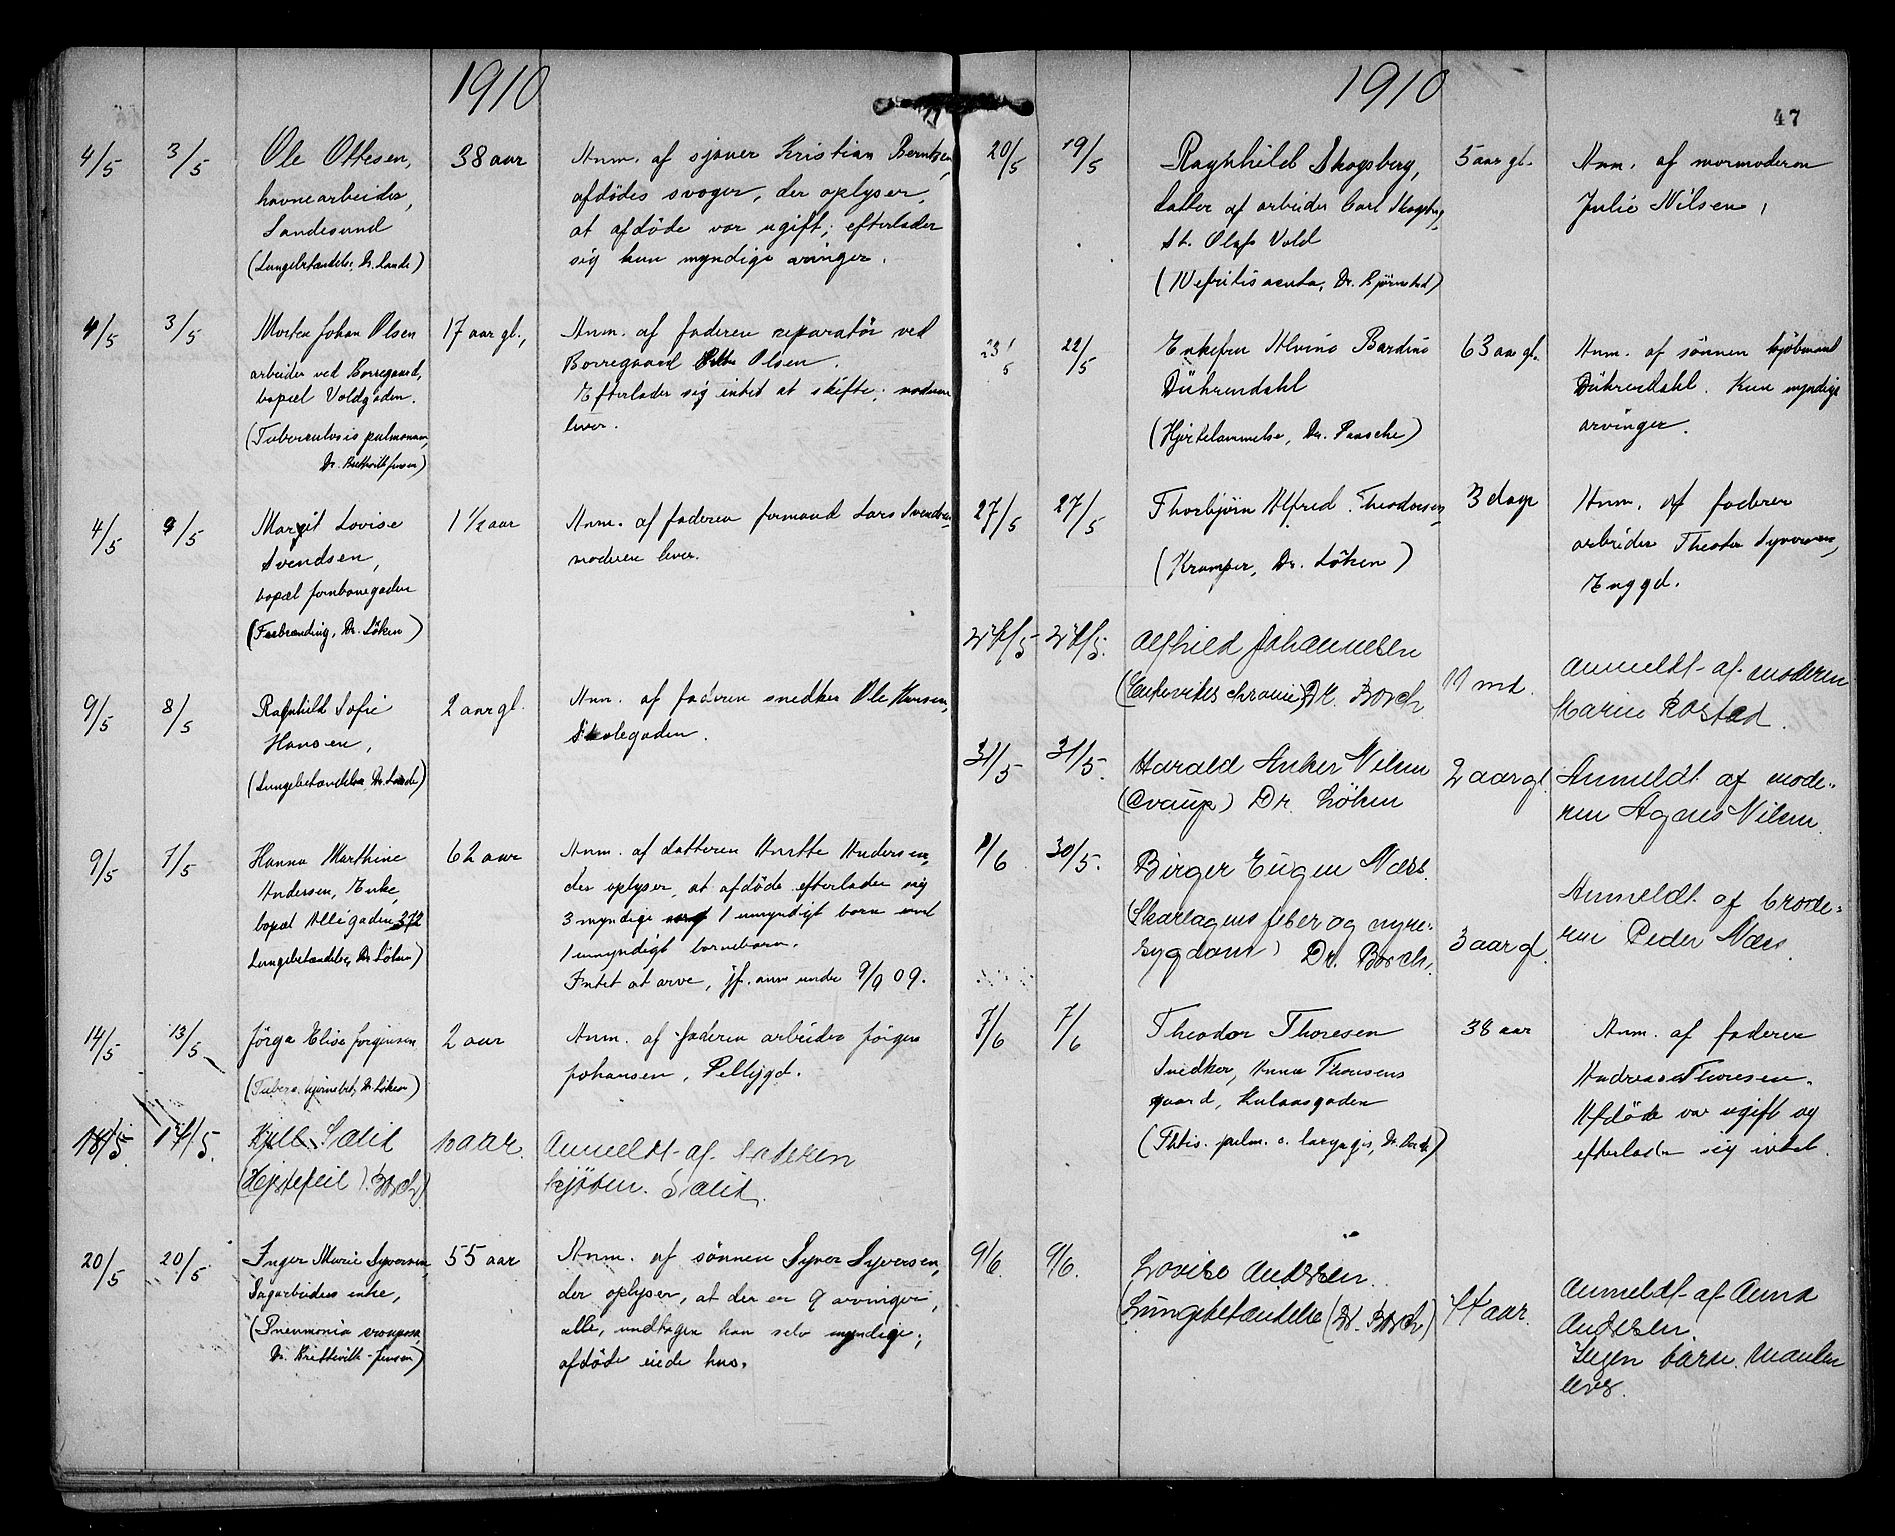 1910
4/5 3/5 Ole Ottesen, 38 aar Anm. af sjauer Kristian Berntsen,
havnearbeider, afdødes svoger, der oplyser,
Sandesund at afdøde var ugift; efterlader
(Lungebetændelse, Dr. Lande) sig kun myndige arvinger.
4/5 3/5 Morten Johan Olsen 17 aar gl., Anm. af faderen reparatør ved
arbeider ved Borregaard, Borregaard Olsen.
bopæl Voldgaden. Efterlader sig intet at skifte; moderen
(Tuberculosis pulmonum, lever.
Dr. Bretteville Jensen)
4/5 Margit Lovise 1 1/2 aar Anm. af faderen formand Lars Svendsen
Svendsen, moderen lever.
bopæl Jernbanegaden
(Forbrænding, Dr. Løken)
9/5 8/5 Ragnhild Sofie 2 aar gl. Anm. af faderen snedker Ole Hansen,
Hansen, Skolegaden.
(Lungebetændelse, Dr. Lande)
9/5 7/5 Hanna Marthine 62 aar Anm. af datteren Anette Andersen,
Andersen, Enke, der oplyser, at afdøde efterlader sig
bopæl Allegaden 372 3 myndige 1 umyndigt barn
Lungebetændelse, Dr. Løken) 1 umyndigt barnebarn.
Intet at arve, jf. anm under 9/9 09.
14/5 13/5 Jørga Elise Jørgensen 2 aar Anm. af faderen arbeider Jørgen
(Tuberc. hjernebet, Dr. Løken) Johansen, Pellygd.
18/5. 17/5. Kjell Salid aar. Anmeldt af faderen
(Hjertefeil). Borch) kjøbm. Salid.
20/5 20/5 Inger Marie Syversen, 55 aar Anm. af sønnen Syver Syversen,
Sagarbeiders enke, der oplyser, at der er 9 arvinger,
(Pneumonia crouposa, alle, undtagen han selv myndige;
Dr. Bretteville-Jensen) afdøde eiede hus.
1910
47
20/5 19/5 Ragnhild Skogsberg, 5 aar gl. Anm. af mormoderen
datter af arbeider Carl Skogsberg, Julie Nilsen,
St. Olafs Vold
(Nefritis acuta, Dr. Bjørnstad)
23/5 22/5 Enkefru Alvine Bardine 63 aar gl. Anm. af sønnen kjøbmand
Dührendahl Dührendahl. Kun myndige
(Hjertelammelse, Dr. Paasche) arvinger.
27/5 27/5 Thorbjørn Alfred Theodorsen 3 dage Anm. af faderen
(Kramper, Dr. Løken) arbeider Theodor Syversen,
Enggd.
27/5 27/5. Alfhild Johannesen 11 md. Anmeldt af moderen
(Enterites chronic) Dr. Borch Marie Rostad.
31/5 31/5. Harald Anker Nilsen 2 aar gl. Anmeldt af mode-
(Croup) Dr. Løken ren Agnes Nilsen.
1/6 30/5. Birger Eugen Næss. 3 aar gl. Anmeldt af brode-
(Skarlagens feber og nyre- ren Peder Næss.
sygdom) Dr. Borch.
7/6 7/6 Theodor Thoresen 38 aar Anm. af faderen
Snedker, Anna Thoresens Andreas Thoresen.
gaard, Kulaasgaden Afdøde var ugift og
(Thtis. pulm. o. laryngis, Dr. Borch) efterlader sig intet.
9/6. 9/6. Lovise Andersen. aar. Anmeldt af Anna
(Lungebetændelse (Dr. Borch) Andersen.
Ingen barn. Manden
lever.